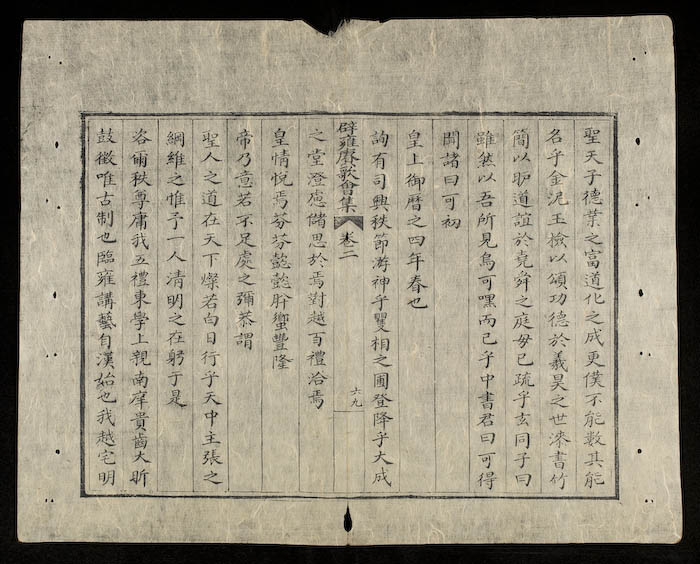 聖天子德業之富道化之成更僕不能數其能
名乎金泥玉檢以頌功德於羲昊之世漆書竹
簡以耶道誼於堯舜之庭毋已疏乎玄同子曰
雖然以吾所見烏可嘿而已乎中書君曰可得
聞諸曰可初
皇上御曆之四年春也
詢有司興秩節游神乎矍相之圃登降乎大成
辟雍賡歌會集 卷二 六九
之堂澄慮儲思於焉對越百禮洽焉
皇情悅焉芬芬懿懿肸蠁豐隆
帝乃意若不足處之彌恭謂
聖人之道在天下燦若白日行乎天中主張之
綱維之惟予一人清明之在躬于是
咨爾秩尊庸我五禮東學上親南庠貴齒大昕
鼓徵唯古制也臨雍講藝自漢始也我越宅明